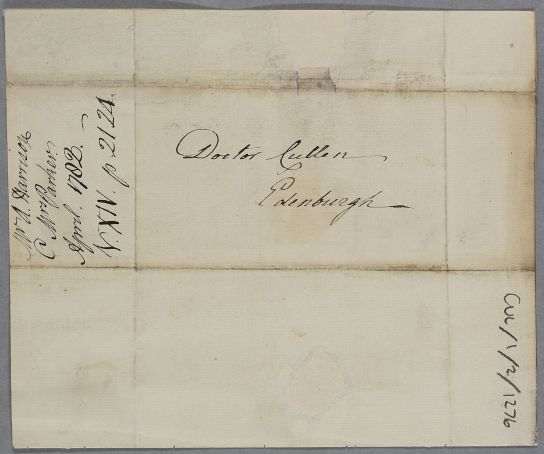 Doctor Cullen
Edenburgh
Mr A. Harrison
C Mrs Parker
April. 1782.
V. XIV. p. 2124.
CUL/1/2/1276